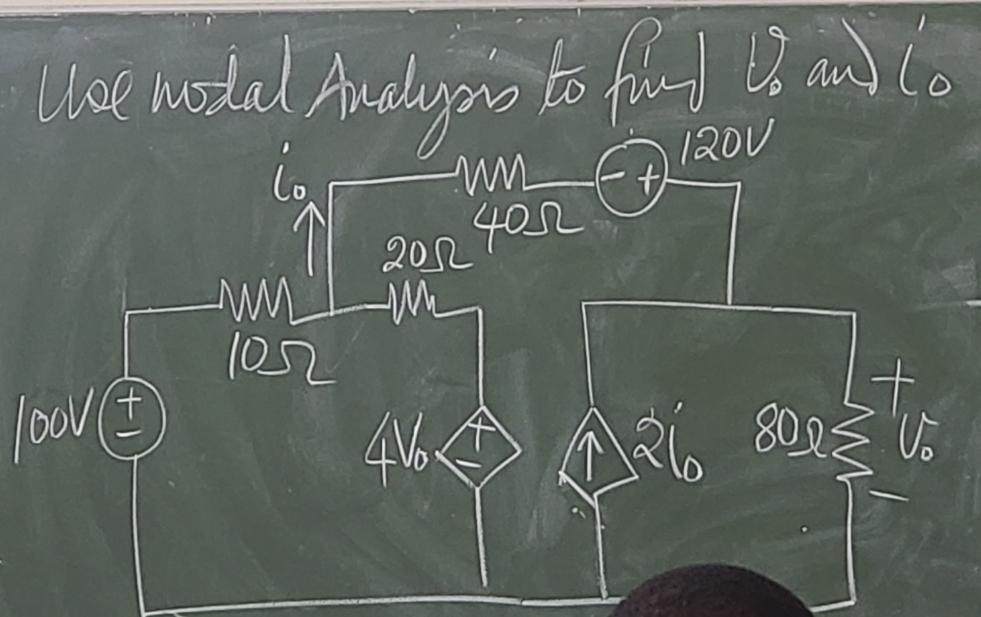 Use nodal Analysis to find V₀ and i₀
i₀
40Ω
- +
120V
20Ω
10Ω
100V
+
-
4V₀
+
-
2i₀
80Ω
+
V₀
-